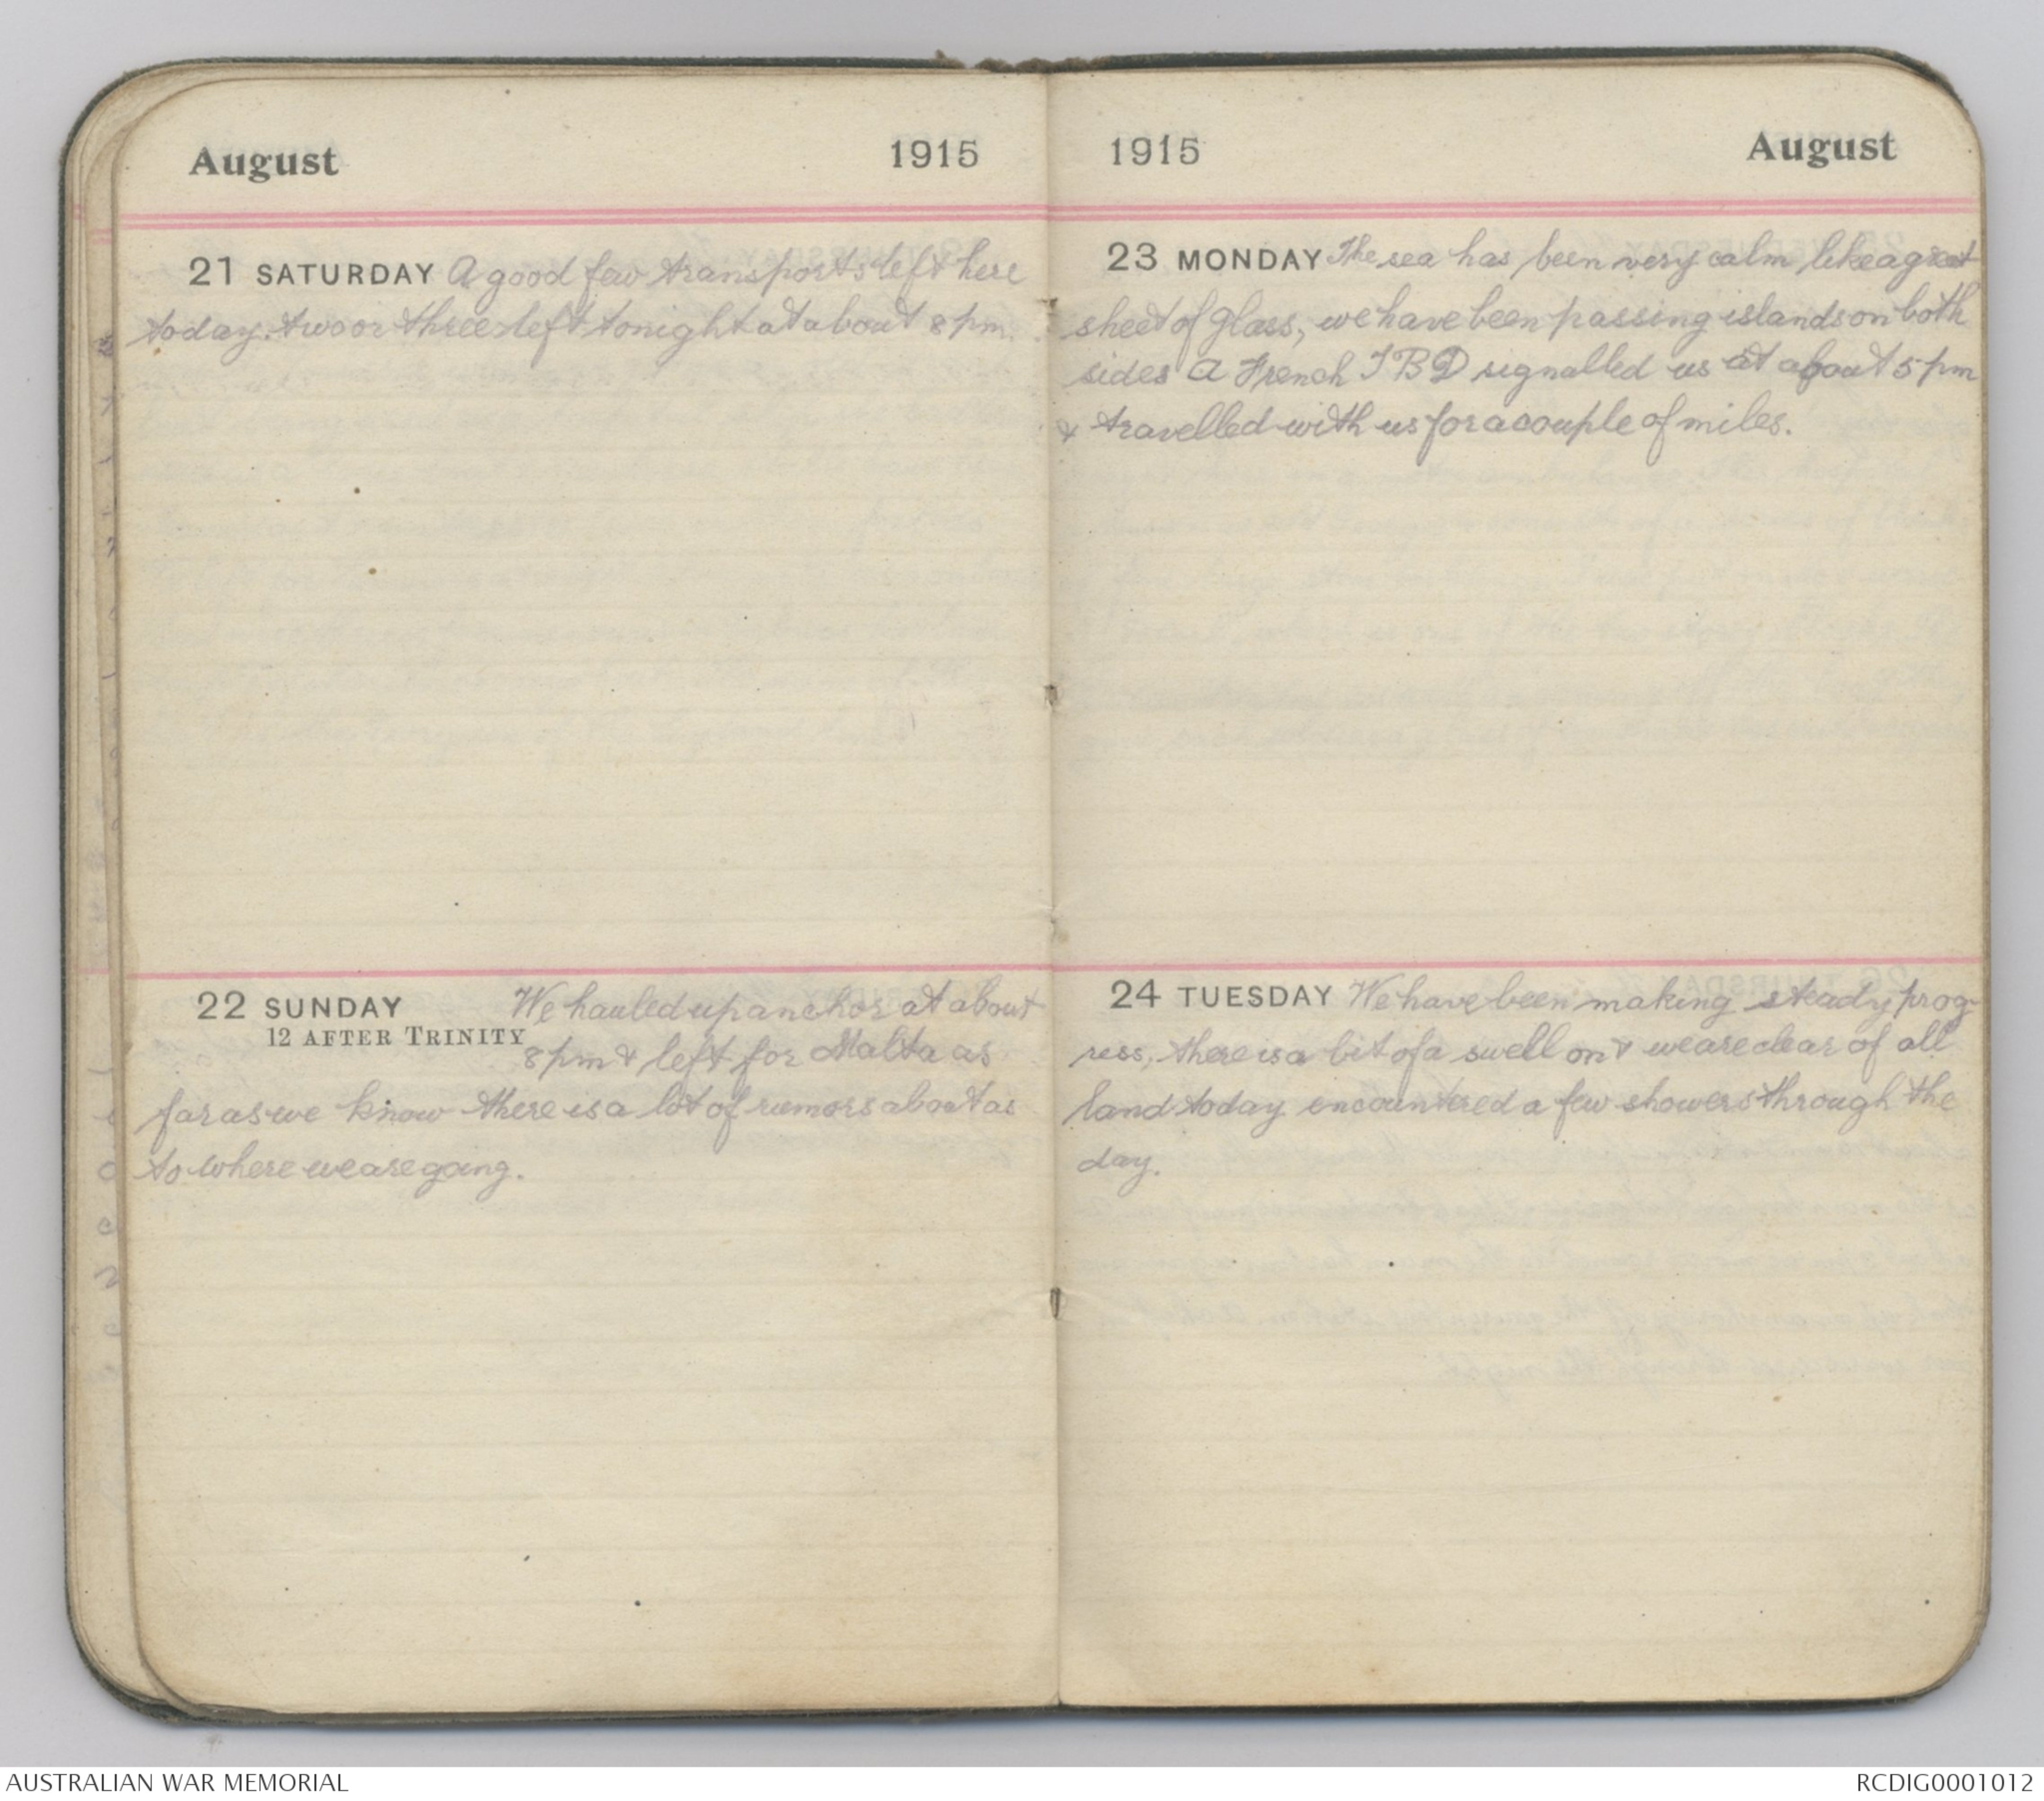 August 1915
21 SATURDAY A good few transports left here
today. two or three left tonight at about 8 pm.
22 SUNDAY We hauled up anchor at about
12 AFTER TRINITY
8 pm & left for Malta as
far as we know there is a lot of rumors about as
to where we are going.
1915 August
23 MONDAY The sea has been very calm like a great
sheet of glass, we have been passing islands on both
sides A French TBD signalled us at about 5 pm
& travelled with us for a couple of miles.
24 TUESDAY We have been making steady prog-
ress, there is a bit of a swell on & we are clear of all
land today encountered a few showers through the
day.
AUSTRALIAN WAR MEMORIAL
RCDIG0001012